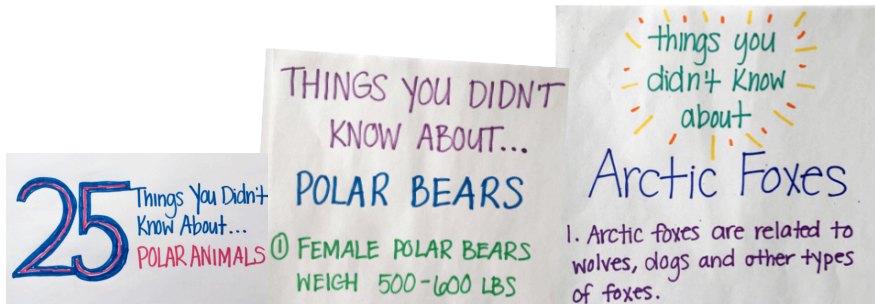 25 Things You Didn't
Know About...
POLAR ANIMALS
THINGS YOU DIDN'T
KNOW ABOUT...
POLAR BEARS
① FEMALE POLAR BEARS
WEIGH 500-600 LBS
things you
didn't know
about
Arctic Foxes
1. Arctic foxes are related to
wolves, dogs and other types
of foxes.